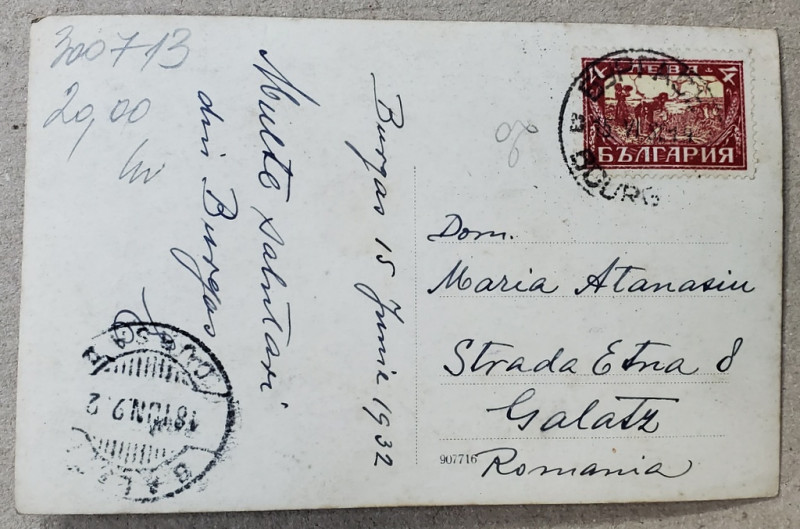 300713
20,00
Burgas 15 Junie 1932
Multe salutari
din Burgas
4 ЛЕВА 4
БЪЛГАРИЯ
BOURG
Dom.
Maria Atanasiu
Strada Etna 8
Galatz
Romania
907716
18 IUN 9 2